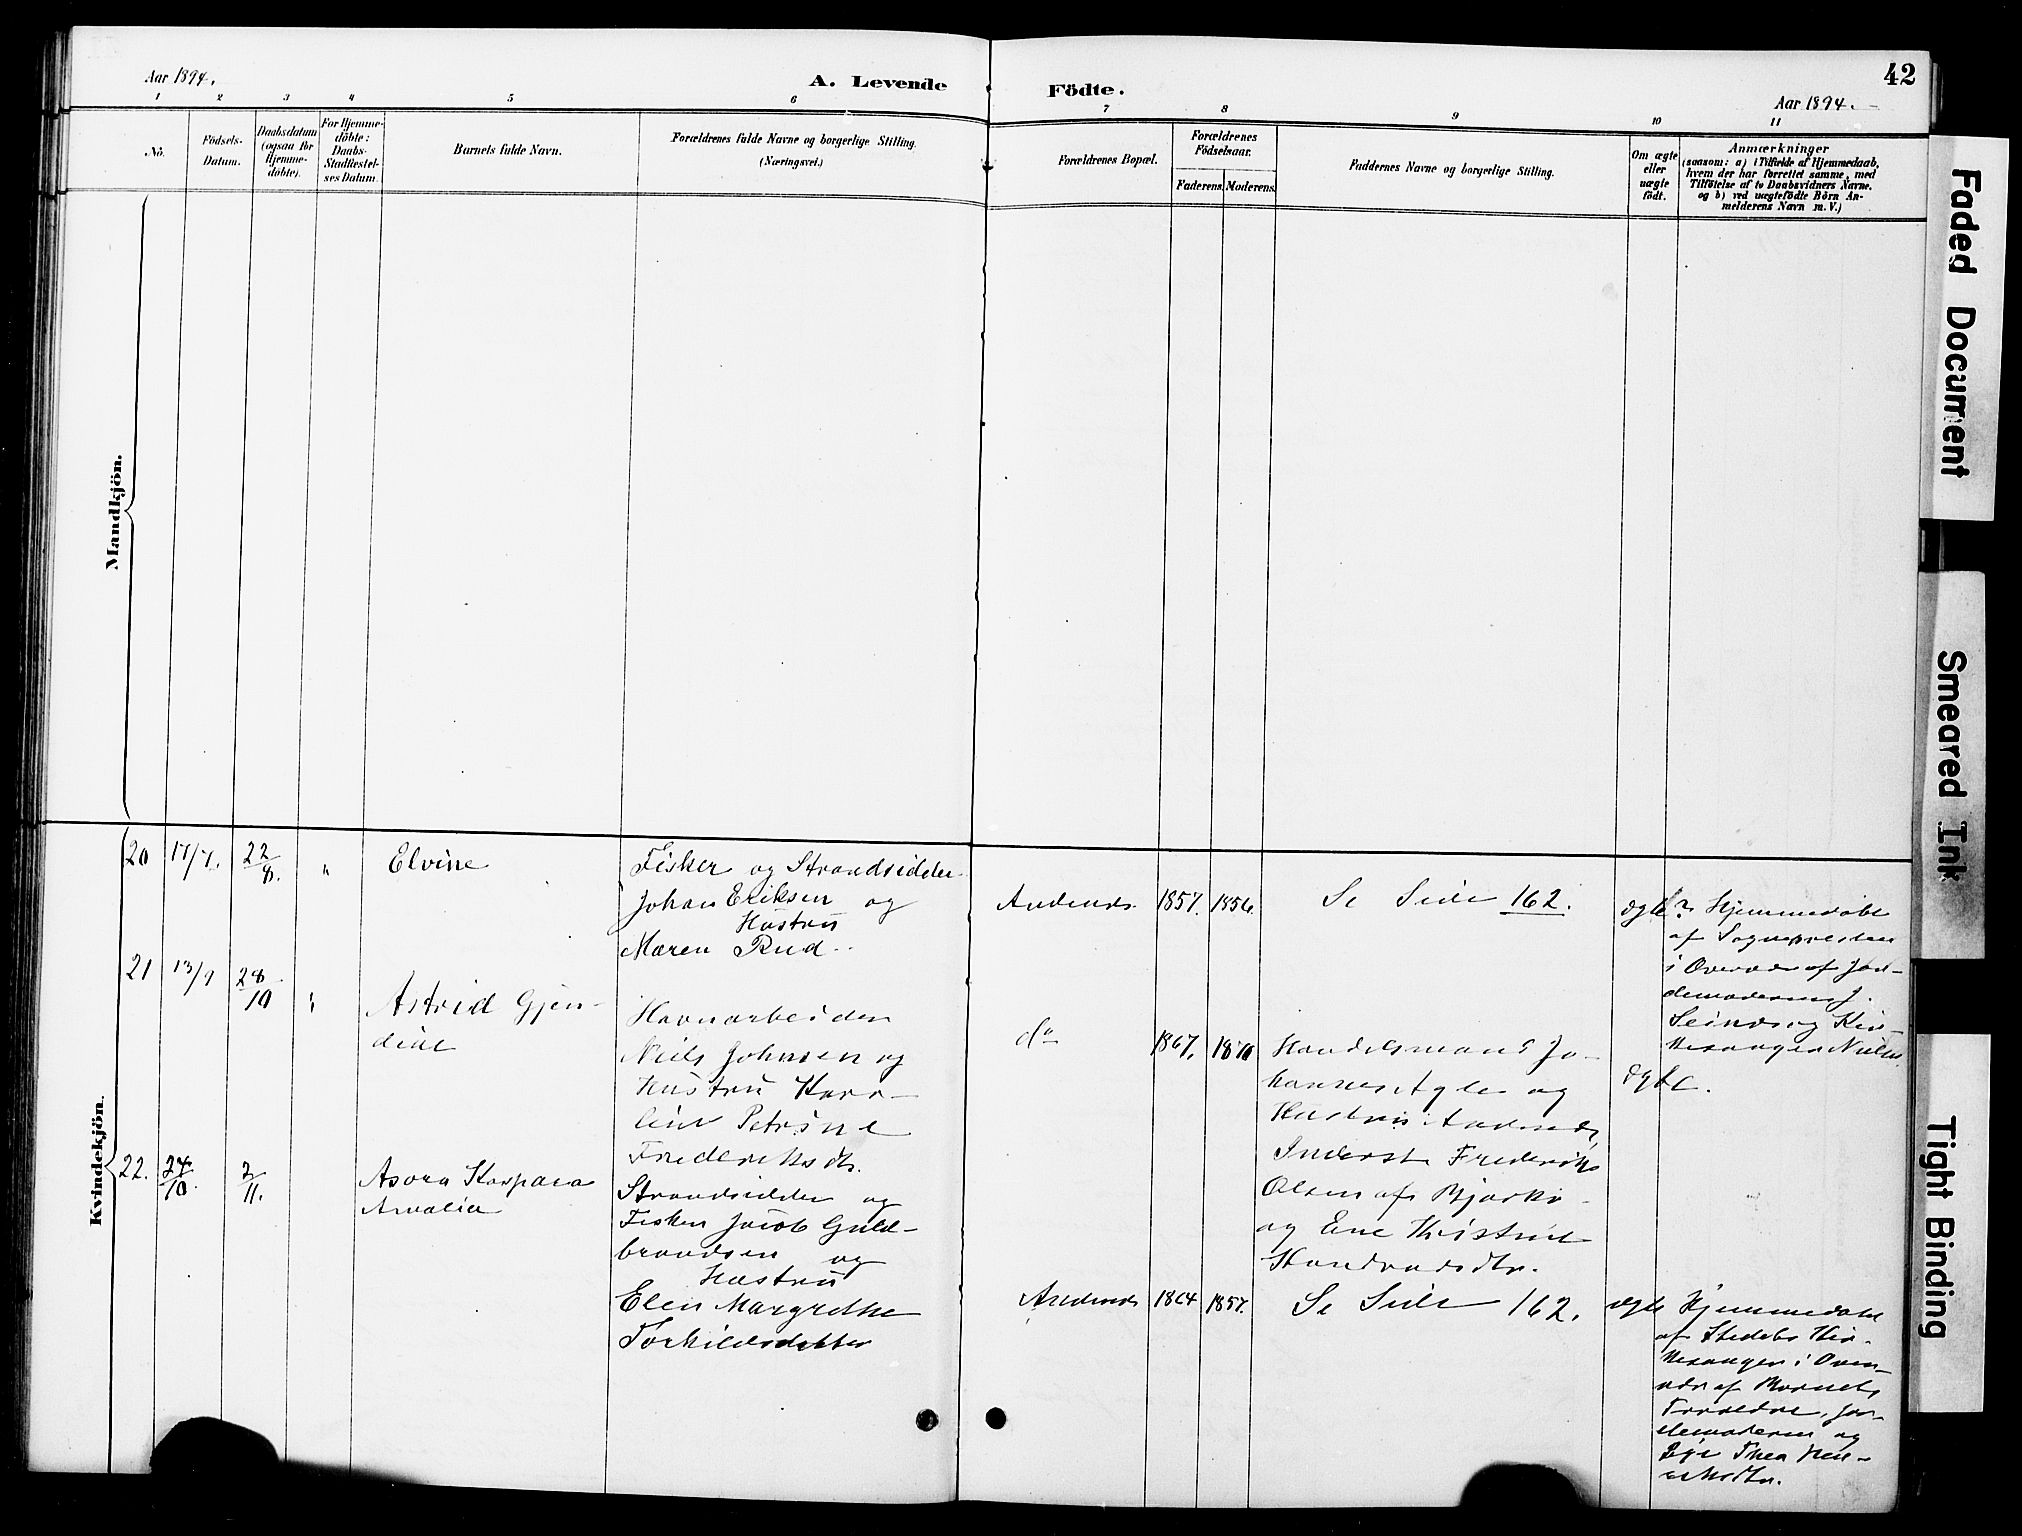 Aar 1894.
A. Levende
Födte.
42
Aar 1894.
1 2 3 4 5 6 7 8 9 10 11
No.
Födsels-
Datum.
Daabsdatum
(ogsaa for
Hjemme-
döbte).
For Hjemme-
döbte:
Daabs-
Stadfestel-
ses Datum.
Barnets fulde Navn.
Forældrenes fulde Navne og borgerlige Stilling.
(Næringsvei.)
Forældrenes Bopæl.
Forældrenes
Födselsaar.
Faderens. Moderens.
Faddernes Navne og borgerlige Stilling.
Om ægte
eller
uægte
födt.
Anmærkninger
(saasom: a) i Tilfælde af Hjemmedaab,
hvem der har forrettet samme, med
Tilföielse af to Daabsvidners Navne.
og b) ved uægtefödte Börn An-
melderens Navn m. V.)
Mandkjön.
Kvindekjön.
20 17/7. 22/8. "
Elvine
Fisker og Strandsidder
Johan Eriksen og
Hustru
Maren Rud.
Andenæs 1857. 1856.
Se Side 162.
ægte
Hjemmedöbt
af Sognepresten
i Overvær af Jor-
demoderen J.
og Kir-
kesanger
21 13/9 28/10 "
Astrid Gjen-
dine
Havnarbeider
Niels Johnsen og
Hustru Karo-
line Petrine
Frederiksdtr.
do 1867. 1870
Handelsmand Jo-
hannes og
Hustru Andenæs,
Inderst Fredrik
Olsen af Bjarkö
og Ene Kristine
ægte.
22. 24/10. 2/11.
Asora Kaspara
Amalia
Strandsidder og
Fisker Jacob Guld-
brandsen og
Hustru
Elen Margrethe
Torkildsdatter
Andenæs 1864 1857.
Se Side 162.
ægte
Hjemmedöbt
af Stedets Kir-
kesanger i Over-
vær af Barnets
Forældre, Jor-
demoderen og
Thea
Faded Document
Smeared Ink
Tight Binding